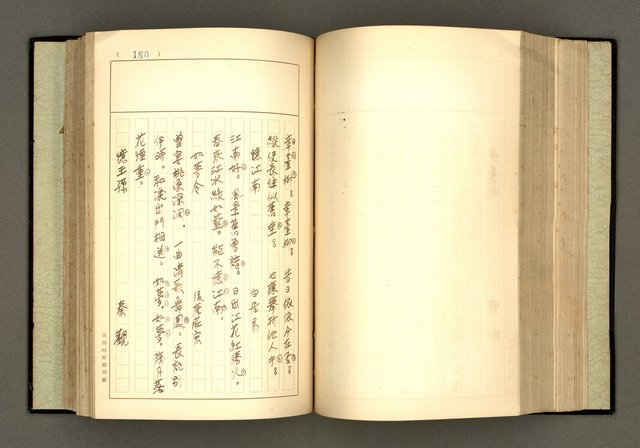 ( 180 )
章臺柳。章臺柳。昔日依依今在否。
縱使長住似舊垂。也應攀折他人手。
憶江南 白居易
江南好。風景舊曾諳。日出江花紅勝火。
春來江水綠如藍。能不憶江南。
如夢令 後唐莊宗
曾宴桃源深洞。一曲清歌舞鳳。長記別
伊時。和淚出門相送。如夢。如夢。殘月落
花煙重。
憶王孫 秦觀